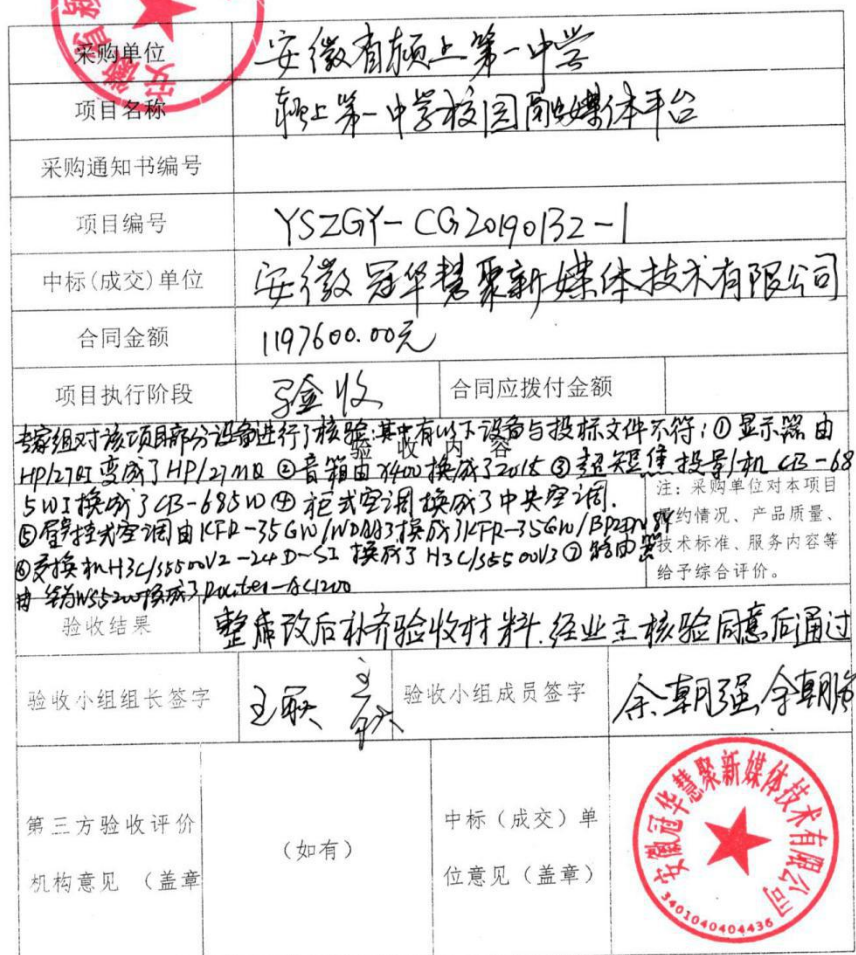 采购单位 安徽省颍上第一中学
项目名称 颍上第一中学校园融媒体平台
采购通知书编号
项目编号 YSZGY-CG20190132-1
中标(成交)单位 安徽冠华慧聚新媒体技术有限公司
合同金额 1197600.00元
项目执行阶段 验收 合同应拨付金额
验收内容
专家组对该项目部分设备进行了核验:其中有以下设备与投标文件不符:①显示器由
HP/27QI变成了HP/27MQ ②音箱由X400换成了2015 ③超短焦投影机CB-68
5WI换成了CB-685W ④柜式空调换成了中央空调.
⑤壁挂式空调由KFR-35GW/换成了KFR-35GW/
⑥交换机H3C/S5500V2-24D-SI换成了H3C/S5500V3 ⑦路由器
由华为WS5200换成了Router-AC1200
注:采购单位对本项目
履约情况、产品质量、
技术标准、服务内容等
给予综合评价。
验收结果 整改后补齐验收材料.经业主核验同意后通过
验收小组组长签字 验收小组成员签字 余朝强
第三方验收评价
机构意见 (盖章
(如有)
中标(成交)单
位意见(盖章)
安徽冠华慧聚新媒体技术有限公司
3401040404436
安徽省颍